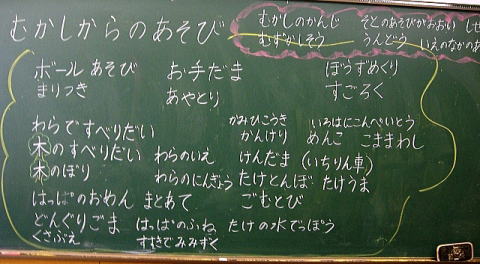 むかしからのあそび
むかしのかんじ
むずかしそう
そとのあそびがおおい しぜ
うんどう いえのなかのあ
ボール あそび お手だま ぼうずめくり
まりつき あやとり すごろく
わらですべりだい かみひこうき いろはにこんぺいとう
木のすべりだい わらのいえ かんけり めんこ こままわし
木のぼり わらのにんぎょう けんだま (いちりん車)
たけとんぼ たけうま
はっぱのおめん まとあて ごむとび
どんぐりごま はっぱのふね たけの水でっぽう
くさぶえ すすきでみみずく